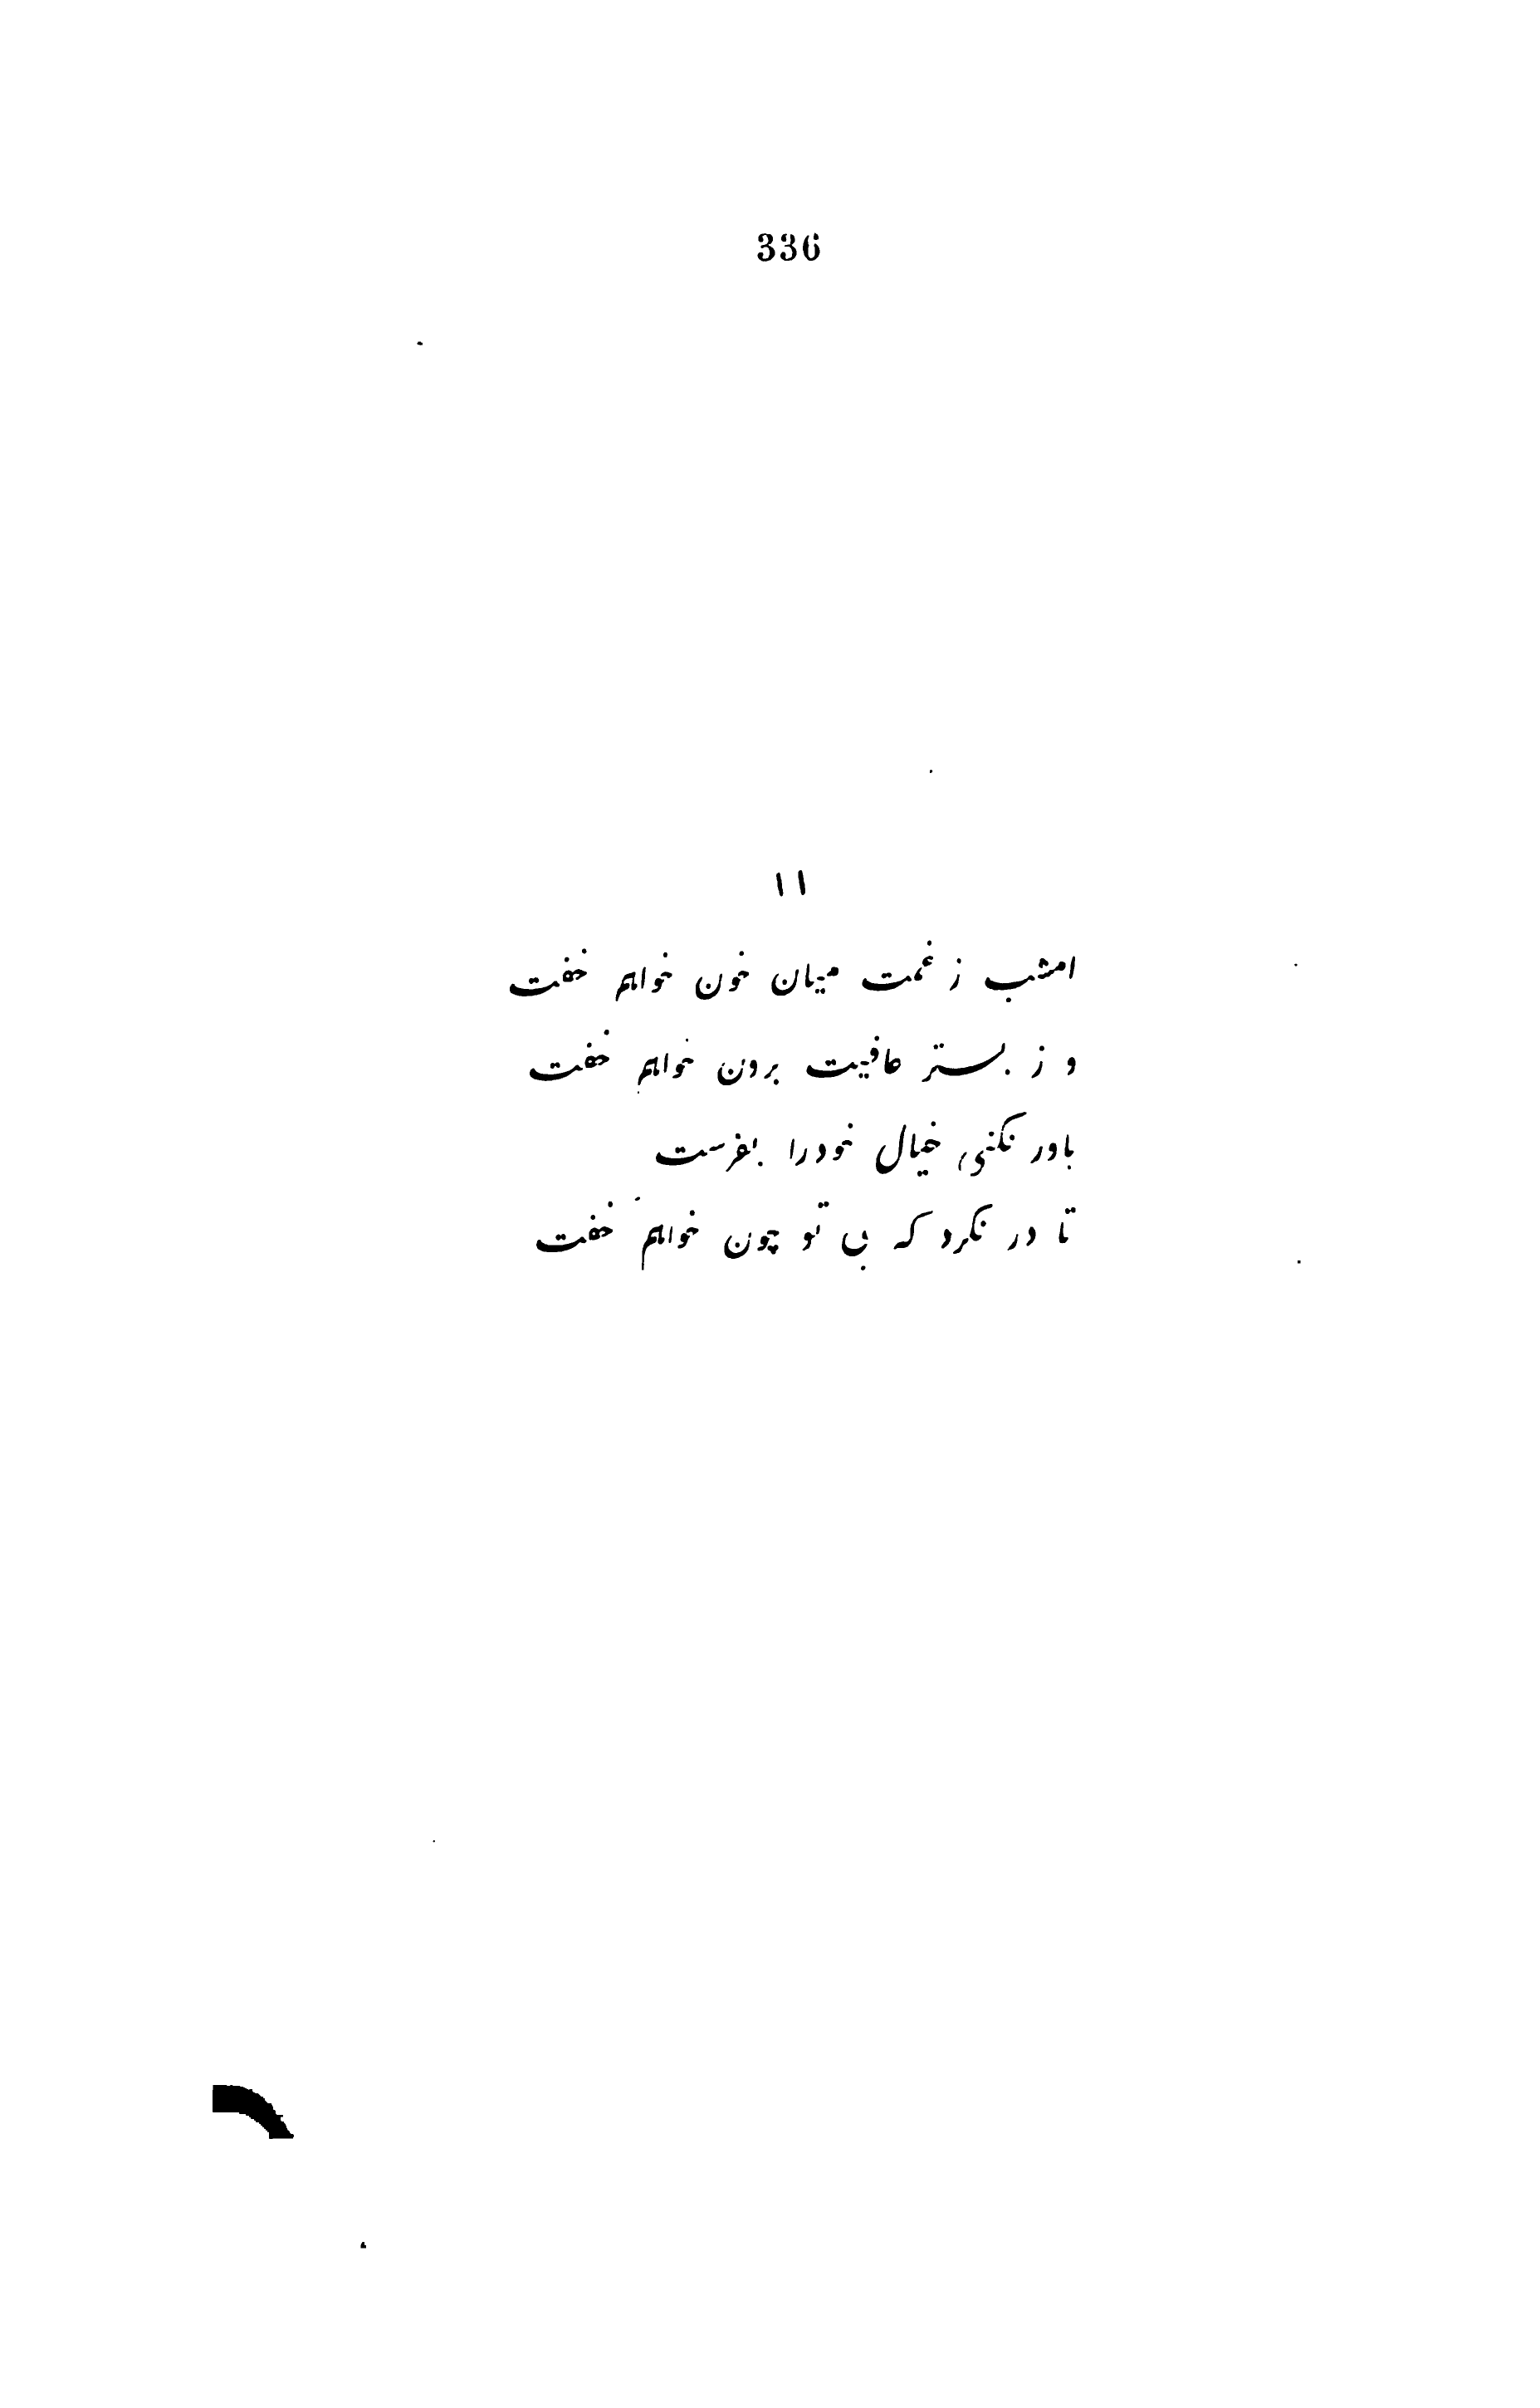 336
۱۱
امشب ز غمت میان خون خواهم خفت
و ز بستر عافیت برون خواهم خفت
باور نکنی، خیال خودرا بفرست
تا در نکرد که بی تو چون خواهم خفت